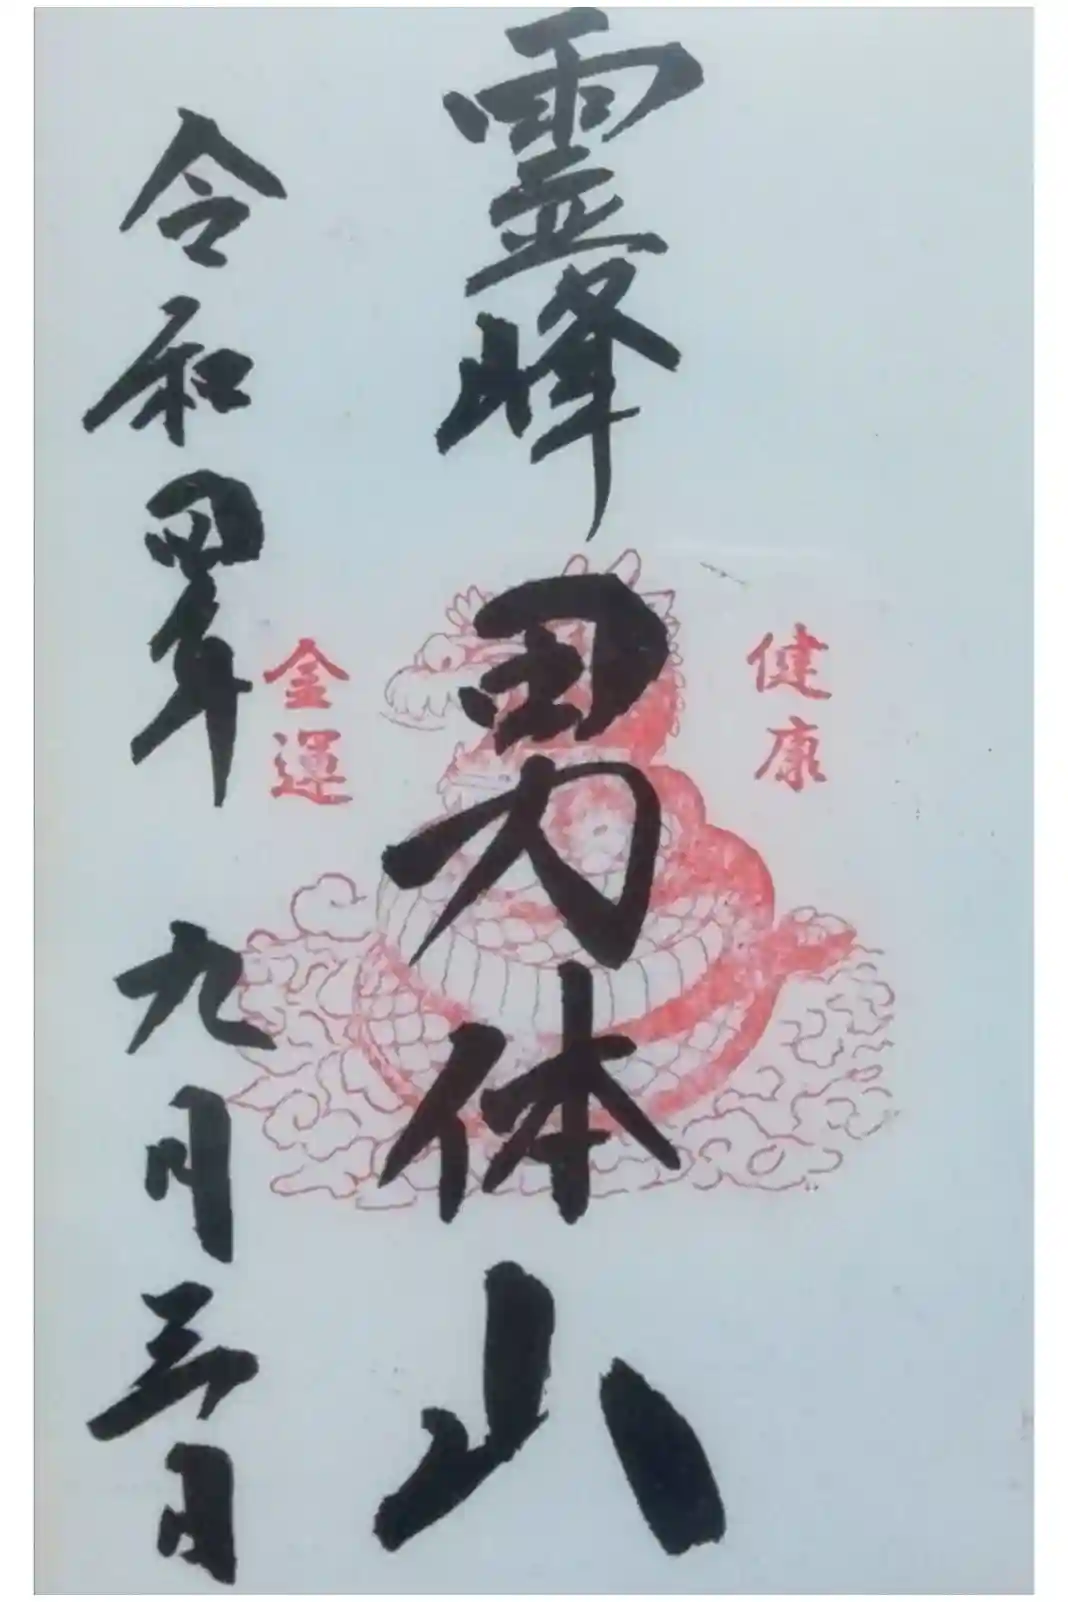 健康
霊峰男体山
金運
令和四年九月三日